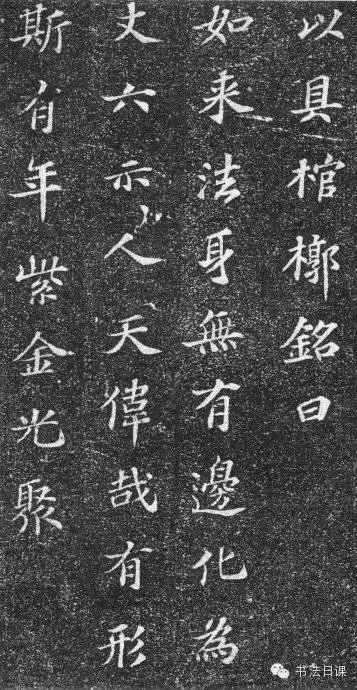 以具棺槨銘曰
如来法身無有邊化為
丈六示人天偉哉有形
斯有年紫金光聚
书法日课